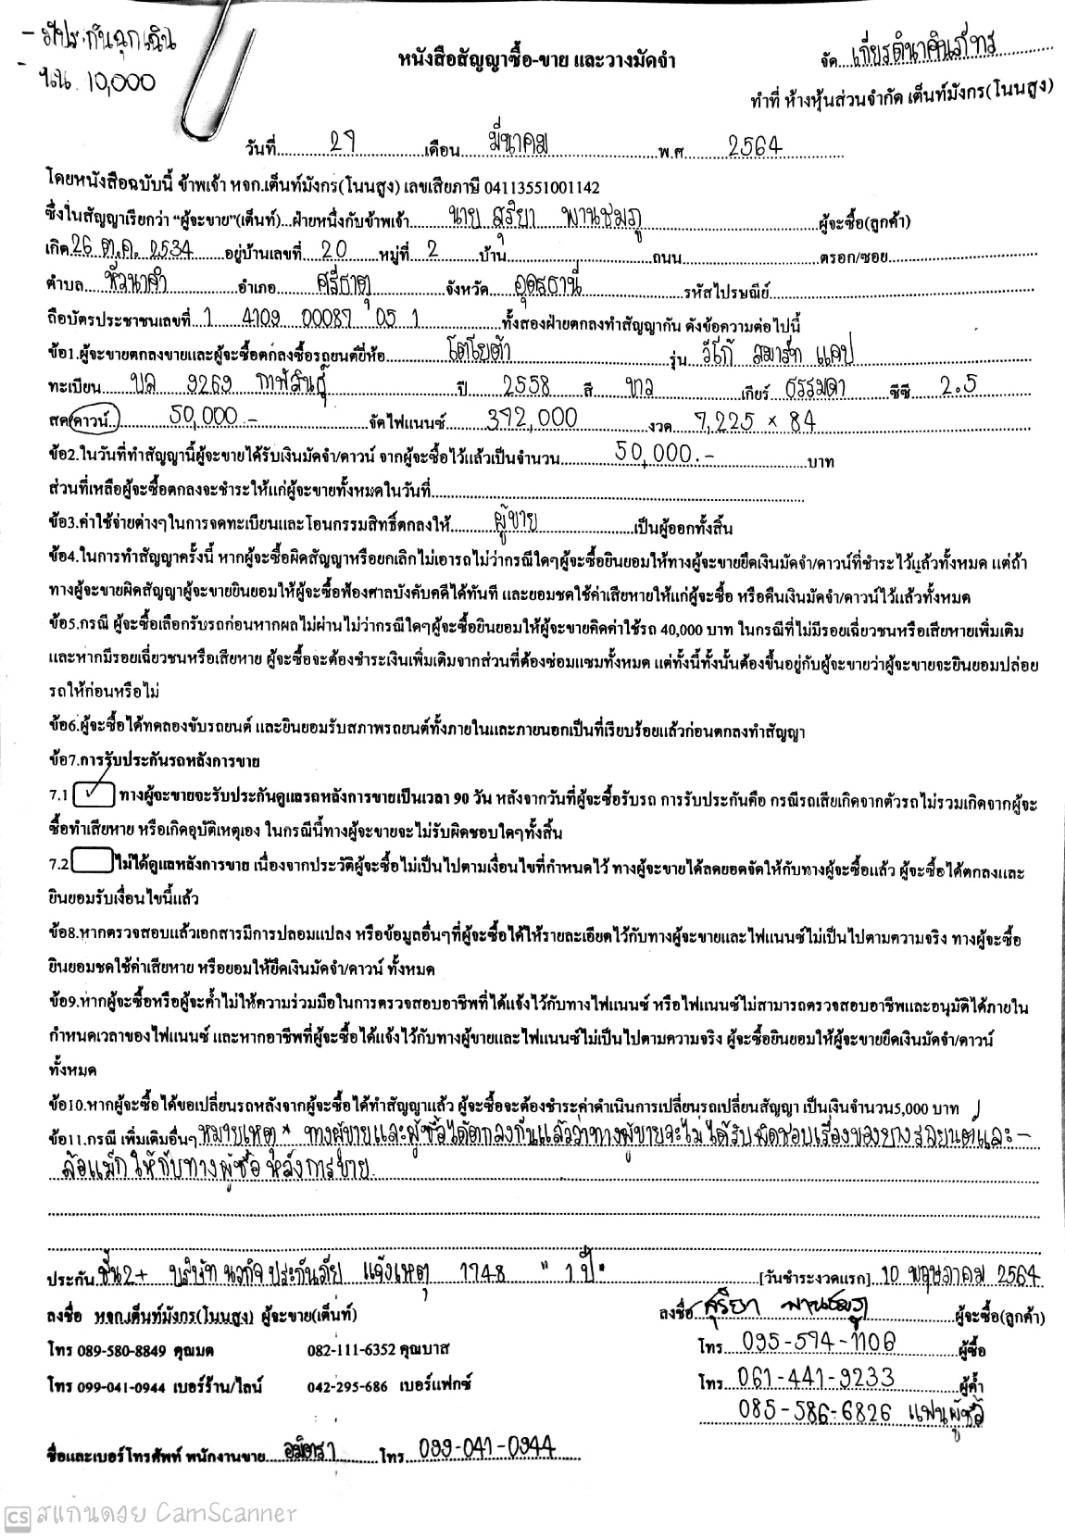 - มีประกันฉุกเฉิน
- ไม่เกิน 10,000
หนังสือสัญญาซื้อ-ขาย และวางมัดจำ
จัด...เกียรตินาคินภัทร
ทำที่ ห้างหุ้นส่วนจำกัด เต็นท์มังกร(โนนสูง)
วันที่...27...เดือน...มีนาคม...พ.ศ....2564
โดยหนังสือฉบับนี้ ข้าพเจ้า หจก.เต็นท์มังกร(โนนสูง) เลขเสียภาษี 04113551001142
ซึ่งในสัญญาเรียกว่า "ผู้จะขาย"(เต็นท์)...ฝ่ายหนึ่งกับข้าพเจ้า...นาย สุริยา พานชมภู...ผู้จะซื้อ(ลูกค้า)
เกิด 26 ต.ค. 2534...อยู่บ้านเลขที่...20...หมู่ที่...2...บ้าน...ถนน...ตรอก/ซอย...
ตำบล...หัวนาคำ...อำเภอ...ศรีธาตุ...จังหวัด...อุดรธานี...รหัสไปรษณีย์...
ถือบัตรประชาชนเลขที่...1 4109 00087 05 1...ทั้งสองฝ่ายตกลงทำสัญญากัน ดังข้อความต่อไปนี้
ข้อ1.ผู้จะขายตกลงขายและผู้จะซื้อตกลงซื้อรถยนต์ยี่ห้อ...โตโยต้า...รุ่น...วีโก้ สมาร์ท แคป
ทะเบียน...บล 9269 กาฬสินธุ์...ปี...2558...สี...ขาว...เกียร์...ธรรมดา...ซีซี...2.5
สด(ดาวน์)...50,000.-...จัดไฟแนนซ์...372,000...งวด...7,225 × 84
ข้อ2.ในวันที่ทำสัญญานี้ผู้จะขายได้รับเงินมัดจำ/ดาวน์ จากผู้จะซื้อไว้แล้วเป็นจำนวน...50,000.-...บาท
ส่วนที่เหลือผู้จะซื้อตกลงจะชำระให้แก่ผู้จะขายทั้งหมดในวันที่...
ข้อ3.ค่าใช้จ่ายต่างๆในการจดทะเบียนและโอนกรรมสิทธิ์ตกลงให้...ผู้ขาย...เป็นผู้ออกทั้งสิ้น
ข้อ4.ในการทำสัญญาครั้งนี้ หากผู้จะซื้อผิดสัญญาหรือยกเลิกไม่เอารถไม่ว่ากรณีใดๆผู้จะซื้อยินยอมให้ทางผู้จะขายยึดเงินมัดจำ/ดาวน์ที่ชำระไว้แล้วทั้งหมด แต่ถ้า
ทางผู้จะขายผิดสัญญาผู้จะขายยินยอมให้ผู้จะซื้อฟ้องศาลบังคับคดีได้ทันที และยอมชดใช้ค่าเสียหายให้แก่ผู้จะซื้อ หรือคืนเงินมัดจำ/ดาวน์ไว้แล้วทั้งหมด
ข้อ5.กรณี ผู้จะซื้อเลือกรับรถก่อนหากผลไม่ผ่านไม่ว่ากรณีใดๆผู้จะซื้อยินยอมให้ผู้จะขายคิดค่าใช้รถ 40,000 บาท ในกรณีที่ไม่มีรอยเฉี่ยวชนหรือเสียหายเพิ่มเติม
และหากมีรอยเฉี่ยวชนหรือเสียหาย ผู้จะซื้อจะต้องชำระเงินเพิ่มเติมจากส่วนที่ต้องซ่อมแซมทั้งหมด แต่ทั้งนี้ทั้งนั้นต้องขึ้นอยู่กับผู้จะขายว่าผู้จะขายจะยินยอมปล่อย
รถให้ก่อนหรือไม่
ข้อ6.ผู้จะซื้อได้ทดลองขับรถยนต์ และยินยอมรับสภาพรถยนต์ทั้งภายในและภายนอกเป็นที่เรียบร้อยแล้วก่อนตกลงทำสัญญา
ข้อ7.การรับประกันรถหลังการขาย
7.1 ✓ ทางผู้จะขายจะรับประกันดูแลรถหลังการขายเป็นเวลา 90 วัน หลังจากวันที่ผู้จะซื้อรับรถ การรับประกันคือ กรณีรถเสียเกิดจากตัวรถไม่รวมเกิดจากผู้จะ
ซื้อทำเสียหาย หรือเกิดอุบัติเหตุเอง ในกรณีนี้ทางผู้จะขายจะไม่รับผิดชอบใดๆทั้งสิ้น
7.2 ไม่ได้ดูแลหลังการขาย เนื่องจากประวัติผู้จะซื้อไม่เป็นไปตามเงื่อนไขที่กำหนดไว้ ทางผู้จะขายได้ลดยอดจัดให้กับทางผู้จะซื้อแล้ว ผู้จะซื้อได้ตกลงและ
ยินยอมรับเงื่อนไขนี้แล้ว
ข้อ8.หากตรวจสอบแล้วเอกสารมีการปลอมแปลง หรือข้อมูลอื่นๆที่ผู้จะซื้อได้ให้รายละเอียดไว้กับทางผู้จะขายและไฟแนนซ์ไม่เป็นไปตามความจริง ทางผู้จะซื้อ
ยินยอมชดใช้ค่าเสียหาย หรือยอมให้ยึดเงินมัดจำ/ดาวน์ ทั้งหมด
ข้อ9.หากผู้จะซื้อหรือผู้จะค้ำไม่ให้ความร่วมมือในการตรวจสอบอาชีพที่ได้แจ้งไว้กับทางไฟแนนซ์ หรือไฟแนนซ์ไม่สามารถตรวจสอบอาชีพและอนุมัติได้ภายใน
กำหนดเวลาของไฟแนนซ์ และหากอาชีพที่ผู้จะซื้อได้แจ้งไว้กับทางผู้ขายและไฟแนนซ์ไม่เป็นไปตามความจริง ผู้จะซื้อยินยอมให้ผู้จะขายยึดเงินมัดจำ/ดาวน์
ทั้งหมด
ข้อ10.หากผู้จะซื้อได้ขอเปลี่ยนรถหลังจากผู้จะซื้อได้ทำสัญญาแล้ว ผู้จะซื้อจะต้องชำระค่าดำเนินการเปลี่ยนรถเปลี่ยนสัญญา เป็นเงินจำนวน5,000 บาท
ข้อ11.กรณี เพิ่มเติมอื่นๆ หมายเหตุ * ทางผู้ขายและผู้ซื้อได้ตกลงกันแล้วว่าทางผู้ขายจะไม่ได้รับผิดชอบเรื่องของยางรถยนต์และ-
ล้อแม็ก ให้กับทางผู้ซื้อ หลังการขาย
ประกัน ชั้น2+ บริษัท นวกิจ ประกันภัย แจ้งเหตุ 1748 " 1 ปี "...[วันชำระงวดแรก] 10 พฤษภาคม 2564
ลงชื่อ หจก.เต็นท์มังกร(โนนสูง) ผู้จะขาย(เต็นท์)
ลงชื่อ สุริยา พานชมภู...ผู้จะซื้อ(ลูกค้า)
โทร 089-580-8849 คุณมด 082-111-6352 คุณบาส
โทร...095-594-1106...ผู้ซื้อ
โทร 099-041-0944 เบอร์ร้าน/ไลน์ 042-295-686 เบอร์แฟกซ์
โทร...061-441-9233...ผู้ค้ำ
085-586-6826 แฟนผู้ซื้อ
ชื่อและเบอร์โทรศัพท์ พนักงานขาย...อมิตรา...โทร...099-041-0944
CS สแกนด้วย CamScanner